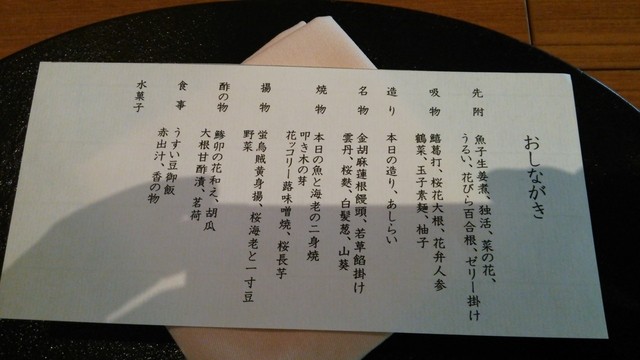 おしながき
先附 魚子生姜煮、独活、菜の花、
うるい、花びら百合根、ゼリー掛け
吸物 鱚葛打、桜花大根、花弁人参
鶴菜、玉子素麺、柚子
造り 本日の造り、あしらい
名物 金胡麻蓮根饅頭、若草餡掛け
雲丹、桜麩、白髪葱、山葵
焼物 本日の魚と海老の二身焼
叩き木の芽
花ッコリー蕗味噌焼、桜長芋
揚物 蛍烏賊黄身揚、桜海老と一寸豆
野菜
酢の物 鯵卯の花和え、胡瓜
大根甘酢漬、茗荷
食事 うすい豆御飯
赤出汁、香の物
水菓子